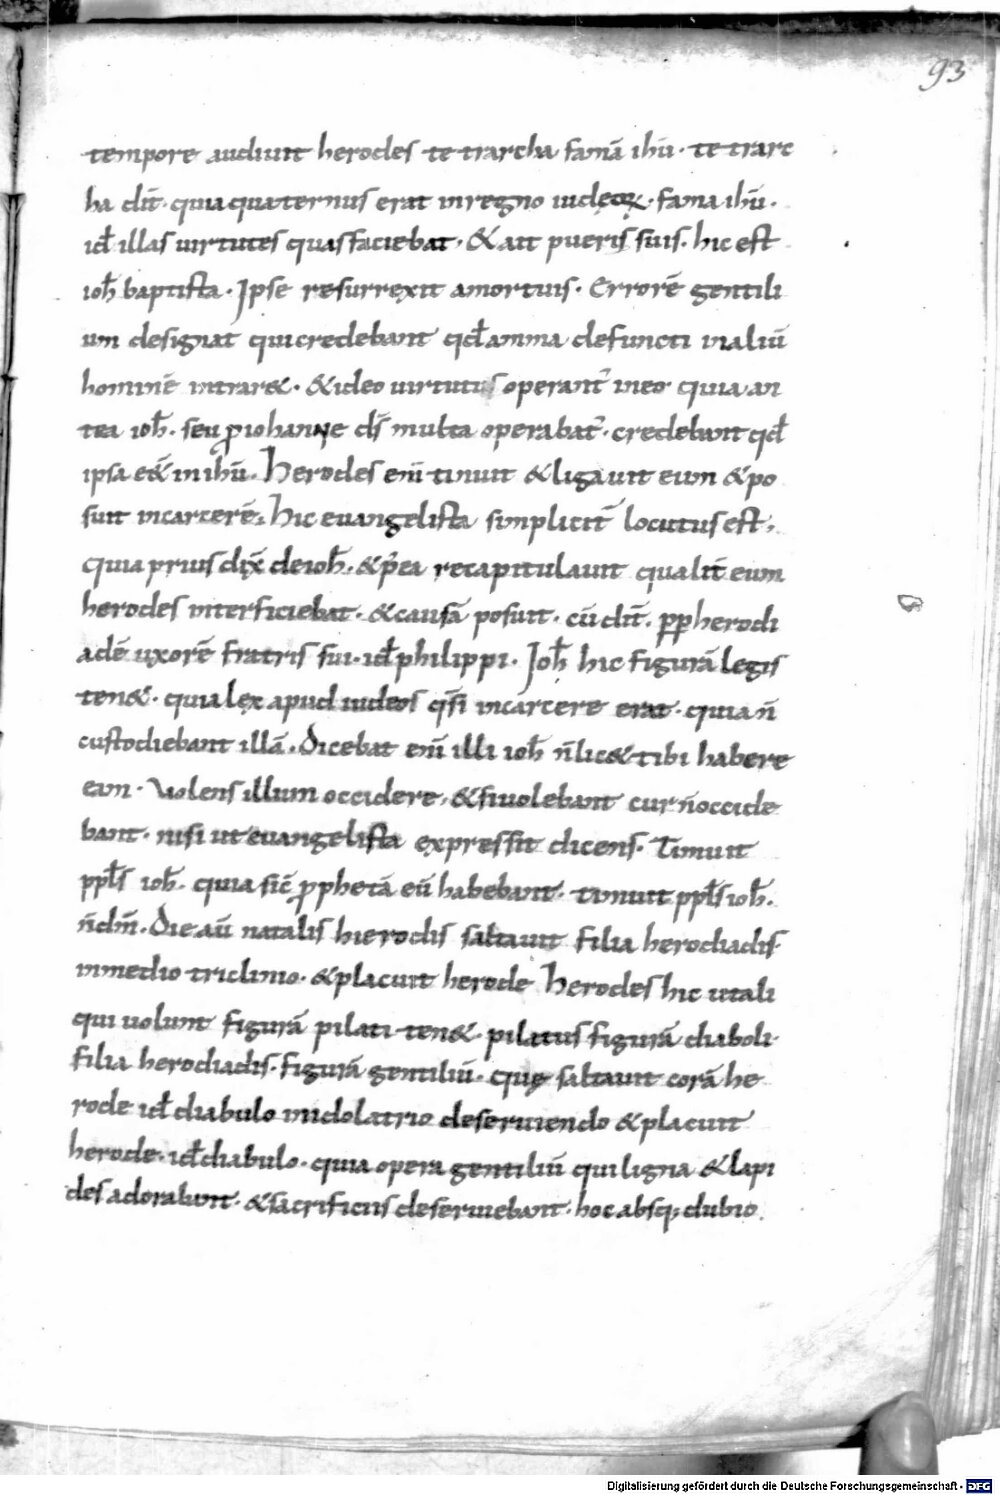 93
tempore audiuit herodes tetrarcha famā ihū· tetrarc
ha dīt· quia quaternus erat inregno iudęoꝝ· fama ihū·
id̄ illas uirtutes quas faciebat· & ait pueris suis· hic est
ioh̄ baptista· Ipse resurrexit amortuis· Errorē gentili
um designat quicredebant qd̄ anima defuncti inaliū
hominē intrar&· & ideo uirtutes operant᷒ ineo· quia an
tea ioh̄· seu ꝑ iohanne ds̄ multa operabat᷒· credebant qd̄
ipsa e&̄ in ihū· Herodes eni̅ tinuit & ligauit eum & po
suit incarcerē· Hic euangelista simplicit̄ locutus est·
quia prius dix̄ deioh̄· & p̄ea recapitulauit qualit̄ eum
herodes interficiebat· & causā posuit· cū dīt· ꝓꝑ herodi
adē uxorē fratris sui· id̄ philippi· Ioh̄ hic figurā legis
ten&· quia lex apud iudeos qs̄i incarcere erat· quia n̄
custodiebant illā· Dicebat eni̅ illi ioh̄ n̄ lic& tibi habere
eam· Volens illum occidere· & si uolebant cur n̄ occide
bant· nisi ut euangelista expressit dicens· Timuit
ppl̄s ioh̄· quia sic̄ ꝓphetā eū habebant· timuit ppl̄s ioh̄·
n̄ dm̄· Die aū natalis hierodis saltauit filia herodiadis·
inmedio triclinio· & placuit herode Herodes hic utali
qui uolunt figurā pilati ten&· pilatus figurā diaboli·
filia herodiadis· figurā gentiliū· quę saltauit corā he
rode id̄ diabulo inidolatrio deseruiendo & placuit
herode· id̄ diabulo· quia opera gentiliū qui ligna & lapi
des adorabant· & sacrificiis deseruiebant· hoc absq; dubio
Digitalisierung gefördert durch die Deutsche Forschungsgemeinschaft - DFG